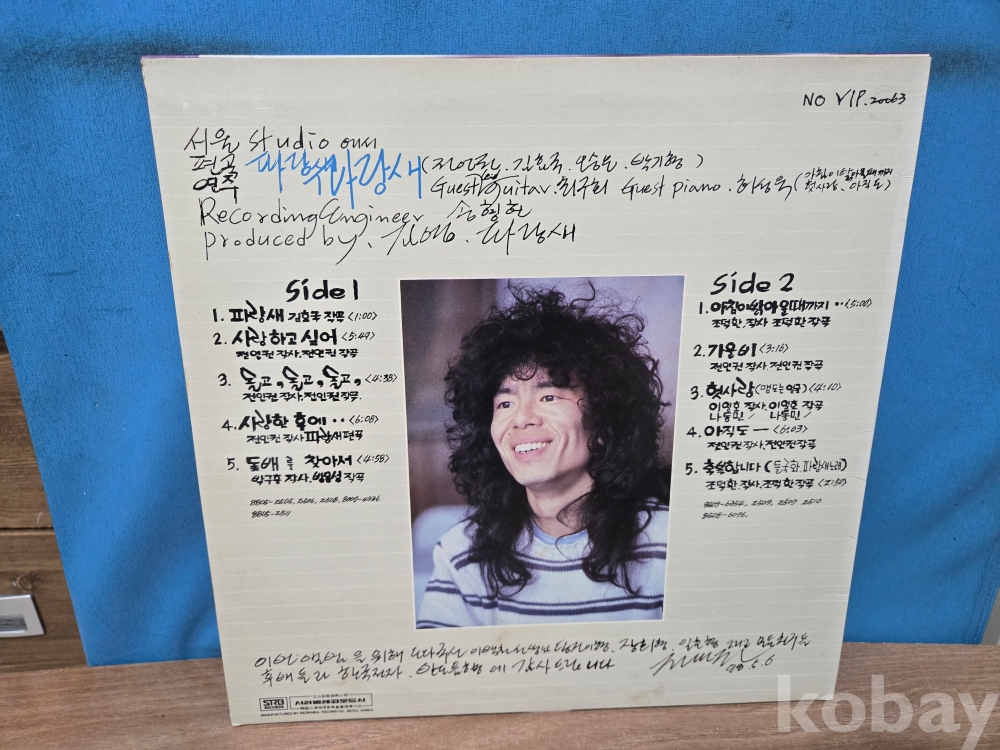 NO VIP.20063
서울 Studio
편곡 연주 파랑새
파랑새 (전인권. 김효국. 오승은. 박기형)
Guest Guitar 최구희 Guest piano. 하성욱 (아침이 밝아올때까지
헛사랑. 아직도)
Recording Engineer 송형헌
produced by. 김영. 파랑새
Side 1
1. 파랑새 김효국 작곡 <1:00>
2. 사랑하고 싶어 <5:49>
전인권 작사. 전인권 작곡
3. 돌고, 돌고, 돌고, <4:38>
전인권 작사. 전인권.
4. 사랑한 후에‥ <6:08>
전인권 작사 파랑새 편곡
5. 돛배를 찾아서 <4:58>
작사. 작곡
8805-2505, 2506, 2508, 8807-4336
8805-2511
Side 2
1. 아침이 밝아올때까지‥ <5:00>
조덕환 작사 조덕환 작곡
2. 가을비 <3:16>
전인권 작사. 전인권 작곡
3. 헛사랑 (맴도는 얼굴) <4:10>
작사. 작곡
4. 아직도 — <6:03>
전인권 작사. 전인권 작곡
5. 축복합니다 (들국화, 파랑새 노래)
조덕환 작사. 조덕환 작곡 <2:50>
2509, 2507 2510
을 위해
후배들과 한국전자. 에 감사드립니다
88.5.6
SRB
RECORDS
서라벌레코드사
MANUFACTURED BY SEORABUL RECORD CO. SEOUL KOREA
kobay